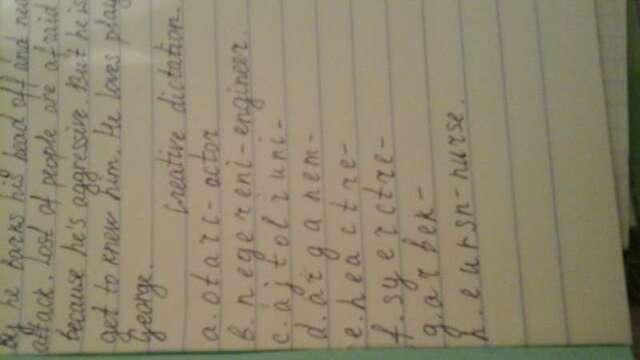 By he barks his head off and
attack. Loot of people are afraid
because he's aggressive. But he is
get to knew him. He loves play
George.
Creative dictation.
a. otarc - actor
b. negereni - engineer.
c. ajtolruni -
d. arganem -
e. heactre -
f. syerctre -
g. arbek -
h. eursn - nurse.